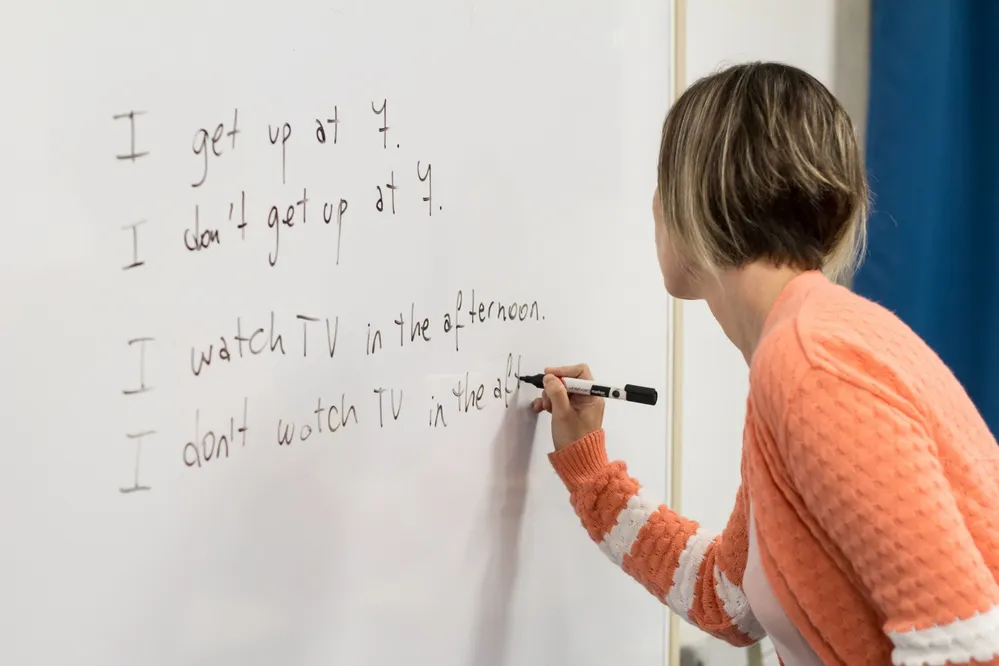 I get up at 7.
I don't get up at 7.
I watch TV in the afternoon.
I don't watch TV in the aft